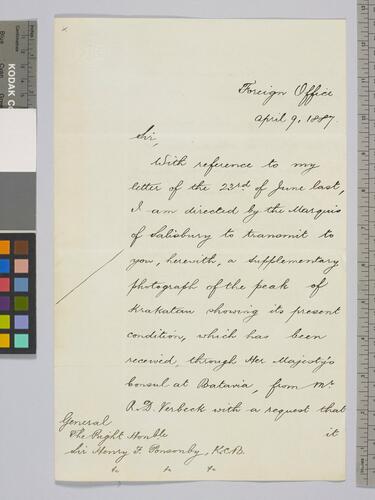 Foreign Office
April 9, 1887.
Sir,
With reference to my
letter of the 23rd of June last,
I am directed by the Marquis
of Salisbury to transmit to
you, herewith, a supplementary
photograph of the peak of
Krakatau showing its present
condition, which has been
received, through Her Majesty's
Consul at Batavia, from Mr
R. D. Verbeek with a request that
it
General
The Right Honble
Sir Henry F. Ponsonby, K.C.B.
&c &c &c
KODAK